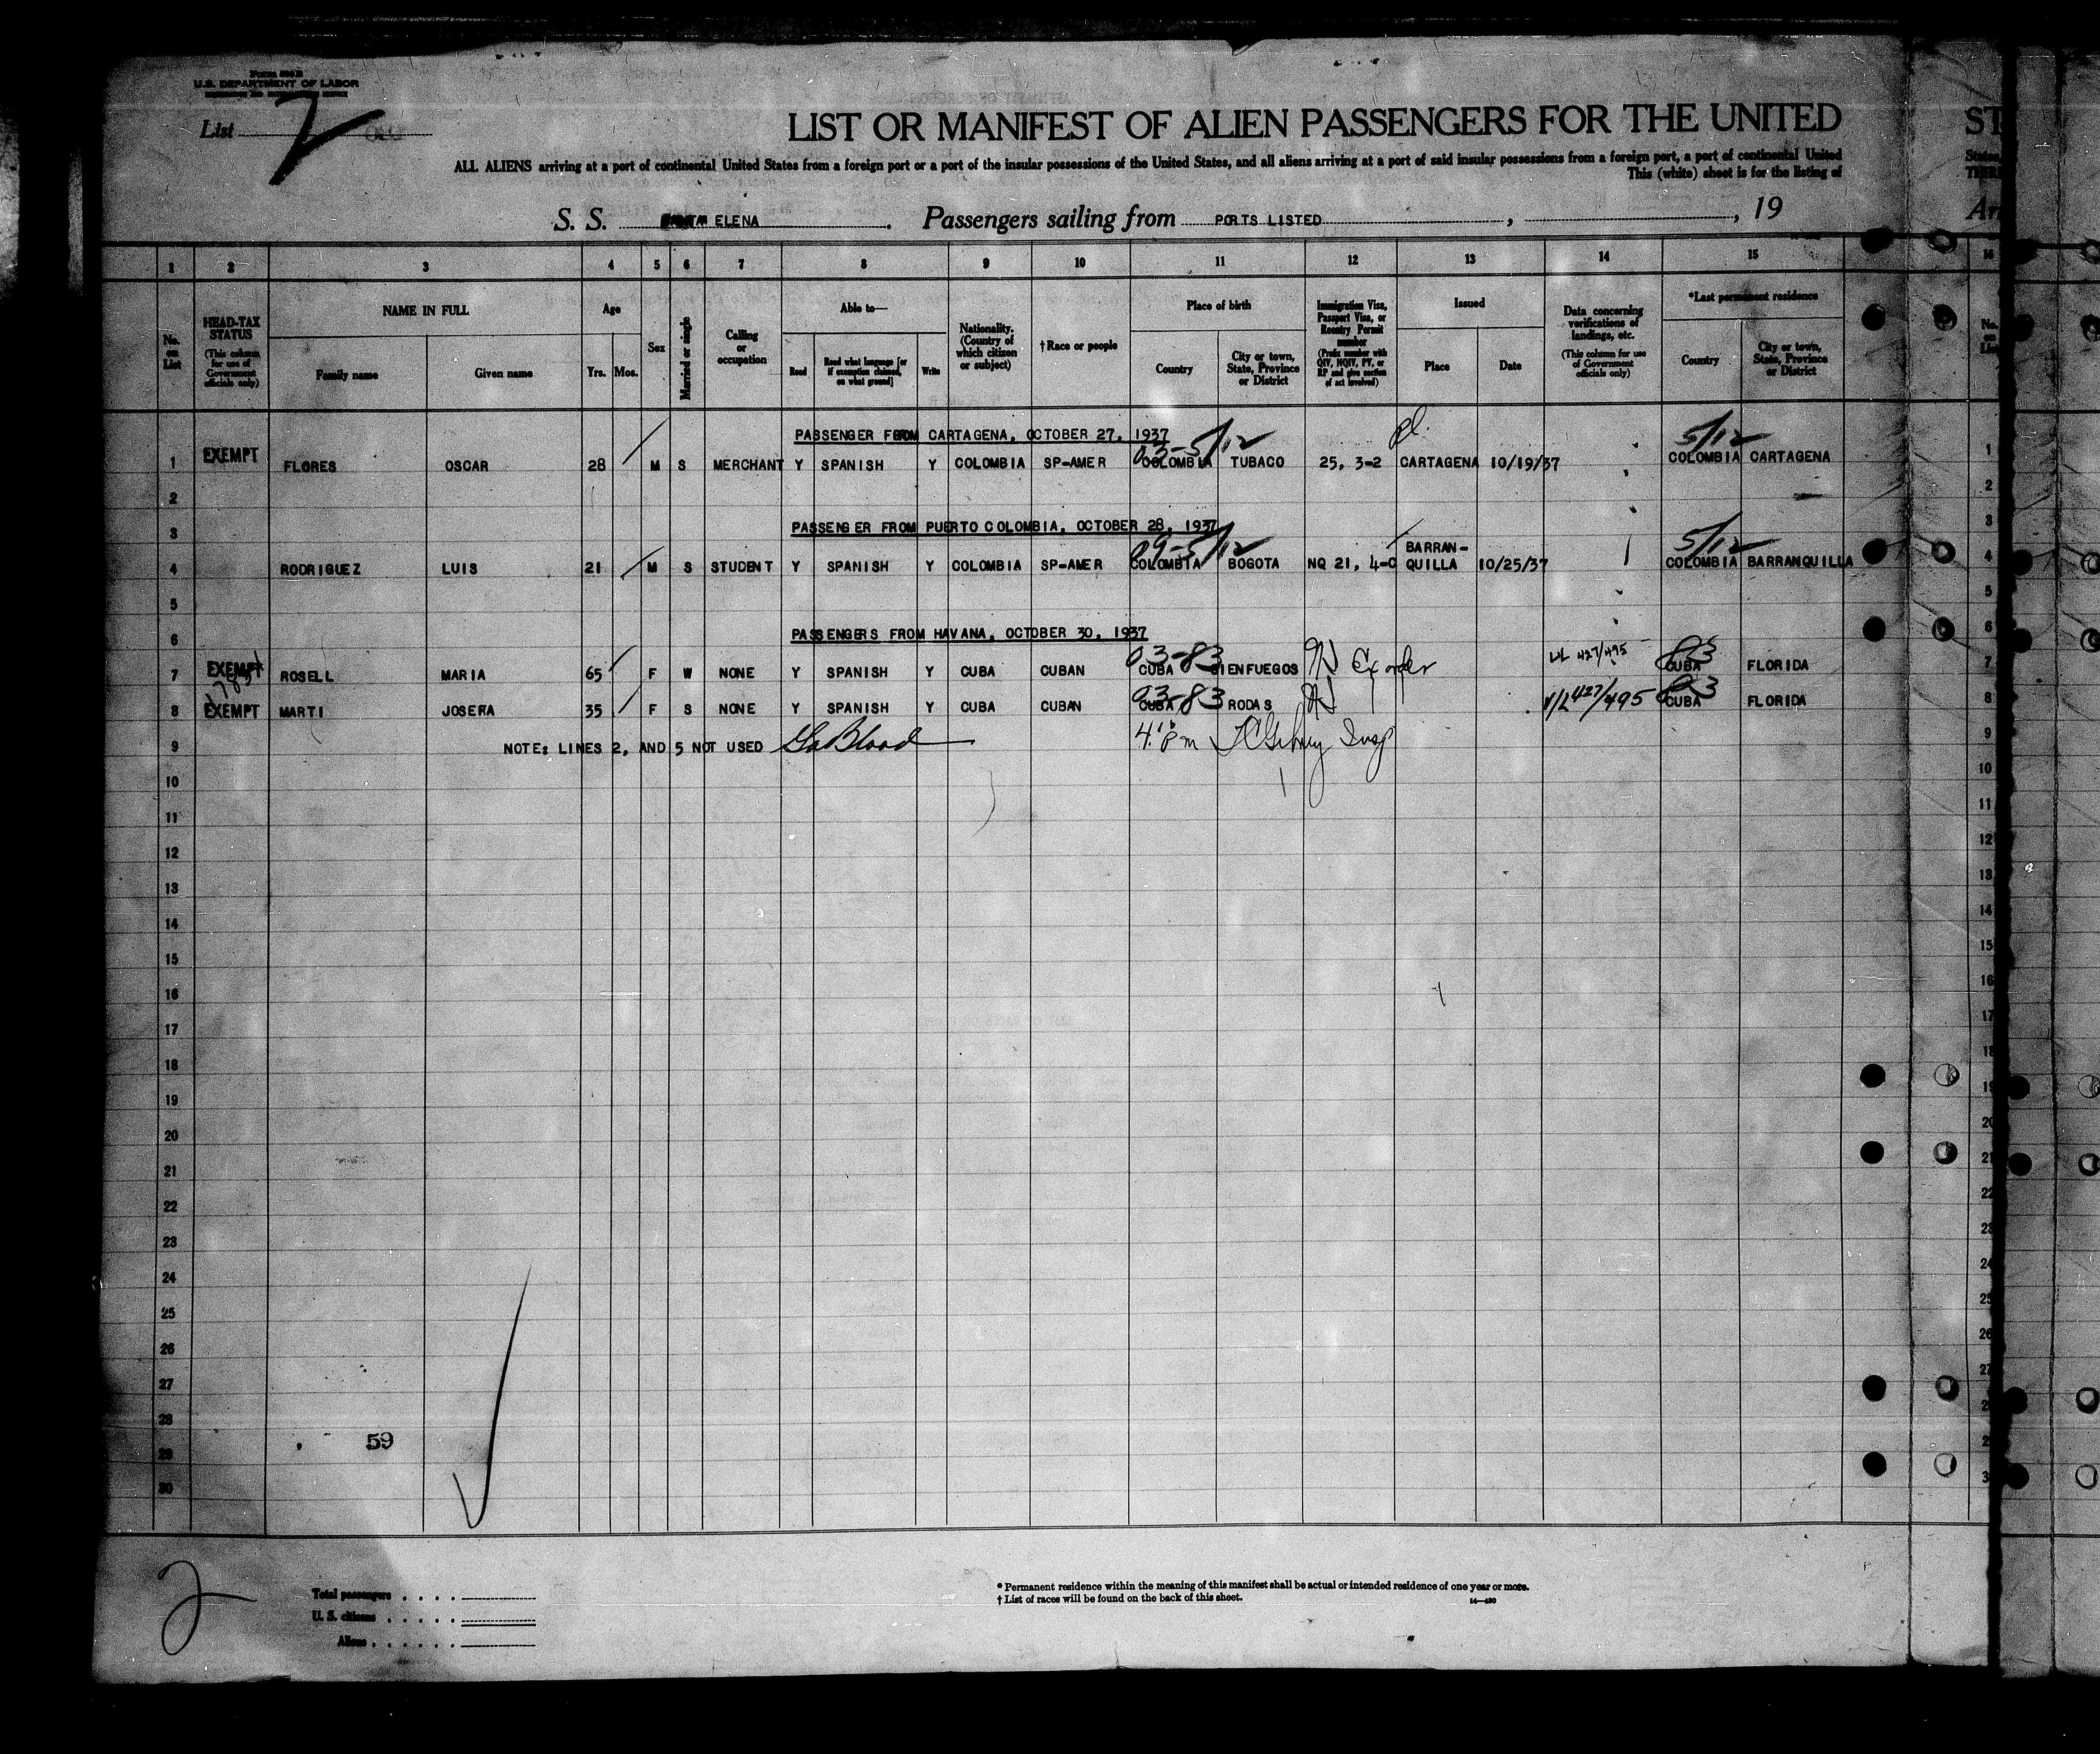 Form 500 B
U.S. DEPARTMENT OF LABOR
List 2
LIST OR MANIFEST OF ALIEN PASSENGERS FOR THE UNITED ST
ALL ALIENS arriving at a port of continental United States from a foreign port or a port of the insular possessions of the United States, and all aliens arriving at a port of said insular possessions from a foreign port, a port of continental United States,
This (white) sheet is for the listing of
S. S. SANTA ELENA. Passengers sailing from PORTS LISTED, , 19
1 2 3 4 5 6 7 8 9 10 11 12 13 14 15 16
No. on List
HEAD-TAX STATUS (This column for use of Government officials only)
NAME IN FULL
Family name
Given name
Age
Yrs. Mos.
Sex
Married or single
Calling or occupation
Able to—
Read
Read what language [or if exemption claimed, on what ground]
Write
Nationality. (Country of which citizen or subject)
†Race or people
Place of birth
Country
City or town, State, Province or District
Immigration Visa, Passport Visa, or Reentry Permit number (Prefix number with QIV, NQIV, PV, or RP and give section of act involved)
Issued
Place
Date
Data concerning verifications of landings, etc. (This column for use of Government officials only)
*Last permanent residence
Country
City or town, State, Province or District
No. on List
PASSENGER FROM CARTAGENA, OCTOBER 27, 1937
03-5/12 5/12
1 EXEMPT FLORES OSCAR 28 M S MERCHANT Y SPANISH Y COLOMBIA SP-AMER COLOMBIA TUBACO 25, 3-2 CARTAGENA 10/19/37 COLOMBIA CARTAGENA 1
2 2
3 PASSENGER FROM PUERTO COLOMBIA, OCTOBER 28, 1937 3
09-5/12 5/12
4 RODRIGUEZ LUIS 21 M S STUDENT Y SPANISH Y COLOMBIA SP-AMER COLOMBIA BOGOTA NQ 21, 4-C BARRAN-QUILLA 10/25/37 COLOMBIA BARRANQUILLA 4
5 5
6 PASSENGERS FROM HAVANA, OCTOBER 30, 1937 6
03-83 83
7 EXEMPT ROSELL MARIA 65 F W NONE Y SPANISH Y CUBA CUBAN CUBA CIENFUEGOS Ex order 427/495 CUBA FLORIDA 7
03-83 83
8 EXEMPT MARTI JOSEFA 35 F S NONE Y SPANISH Y CUBA CUBAN CUBA RODAS V/L 427/495 CUBA FLORIDA 8
9 NOTE: LINES 2, AND 5 NOT USED Blood Insp
10 10
11 11
12 12
13 13
14 14
15 15
16 16
17 17
18 18
19 19
20 20
21 21
22 22
23 23
24 24
25 25
26 26
27 27
28
59
29
30
2
Total passengers
U. S. citizens
Aliens
* Permanent residence within the meaning of this manifest shall be actual or intended residence of one year or more.
† List of races will be found on the back of this sheet.